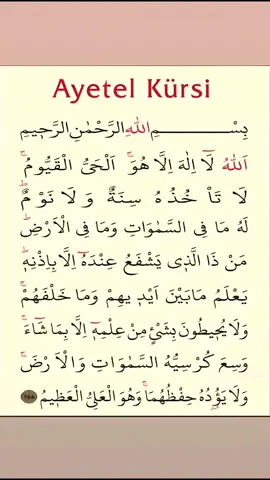 Ayetel Kürsi
بِسْــــــمِ اللّٰهِ الرَّحْمٰنِ الرَّحٖيمِ
اَللّٰهُ لَٓا اِلٰهَ اِلَّا هُوَۚ اَلْحَيُّ الْقَيُّومُۚ
لَا تَأْخُذُهُ سِنَةٌ وَلَا نَوْمٌؕ
لَهُ مَا فِي السَّمٰوَاتِ وَمَا فِي الْاَرْضِؕ
مَنْ ذَا الَّذٖي يَشْفَعُ عِنْدَهُٓ اِلَّا بِاِذْنِهٖؕ
يَعْلَمُ مَابَيْنَ اَيْدٖيهِمْ وَمَا خَلْفَهُمْۚ
وَلَا يُحٖيطُونَ بِشَيْءٍ مِنْ عِلْمِهٖٓ اِلَّا بِمَا شَٓاءَۚ
وَسِعَ كُرْسِيُّهُ السَّمٰوَاتِ وَالْاَرْضَۚ
وَلَا يَؤُدُهُ حِفْظُهُمَاۚ وَهُوَ الْعَلِيُّ الْعَظٖيمُ ٢٥٥